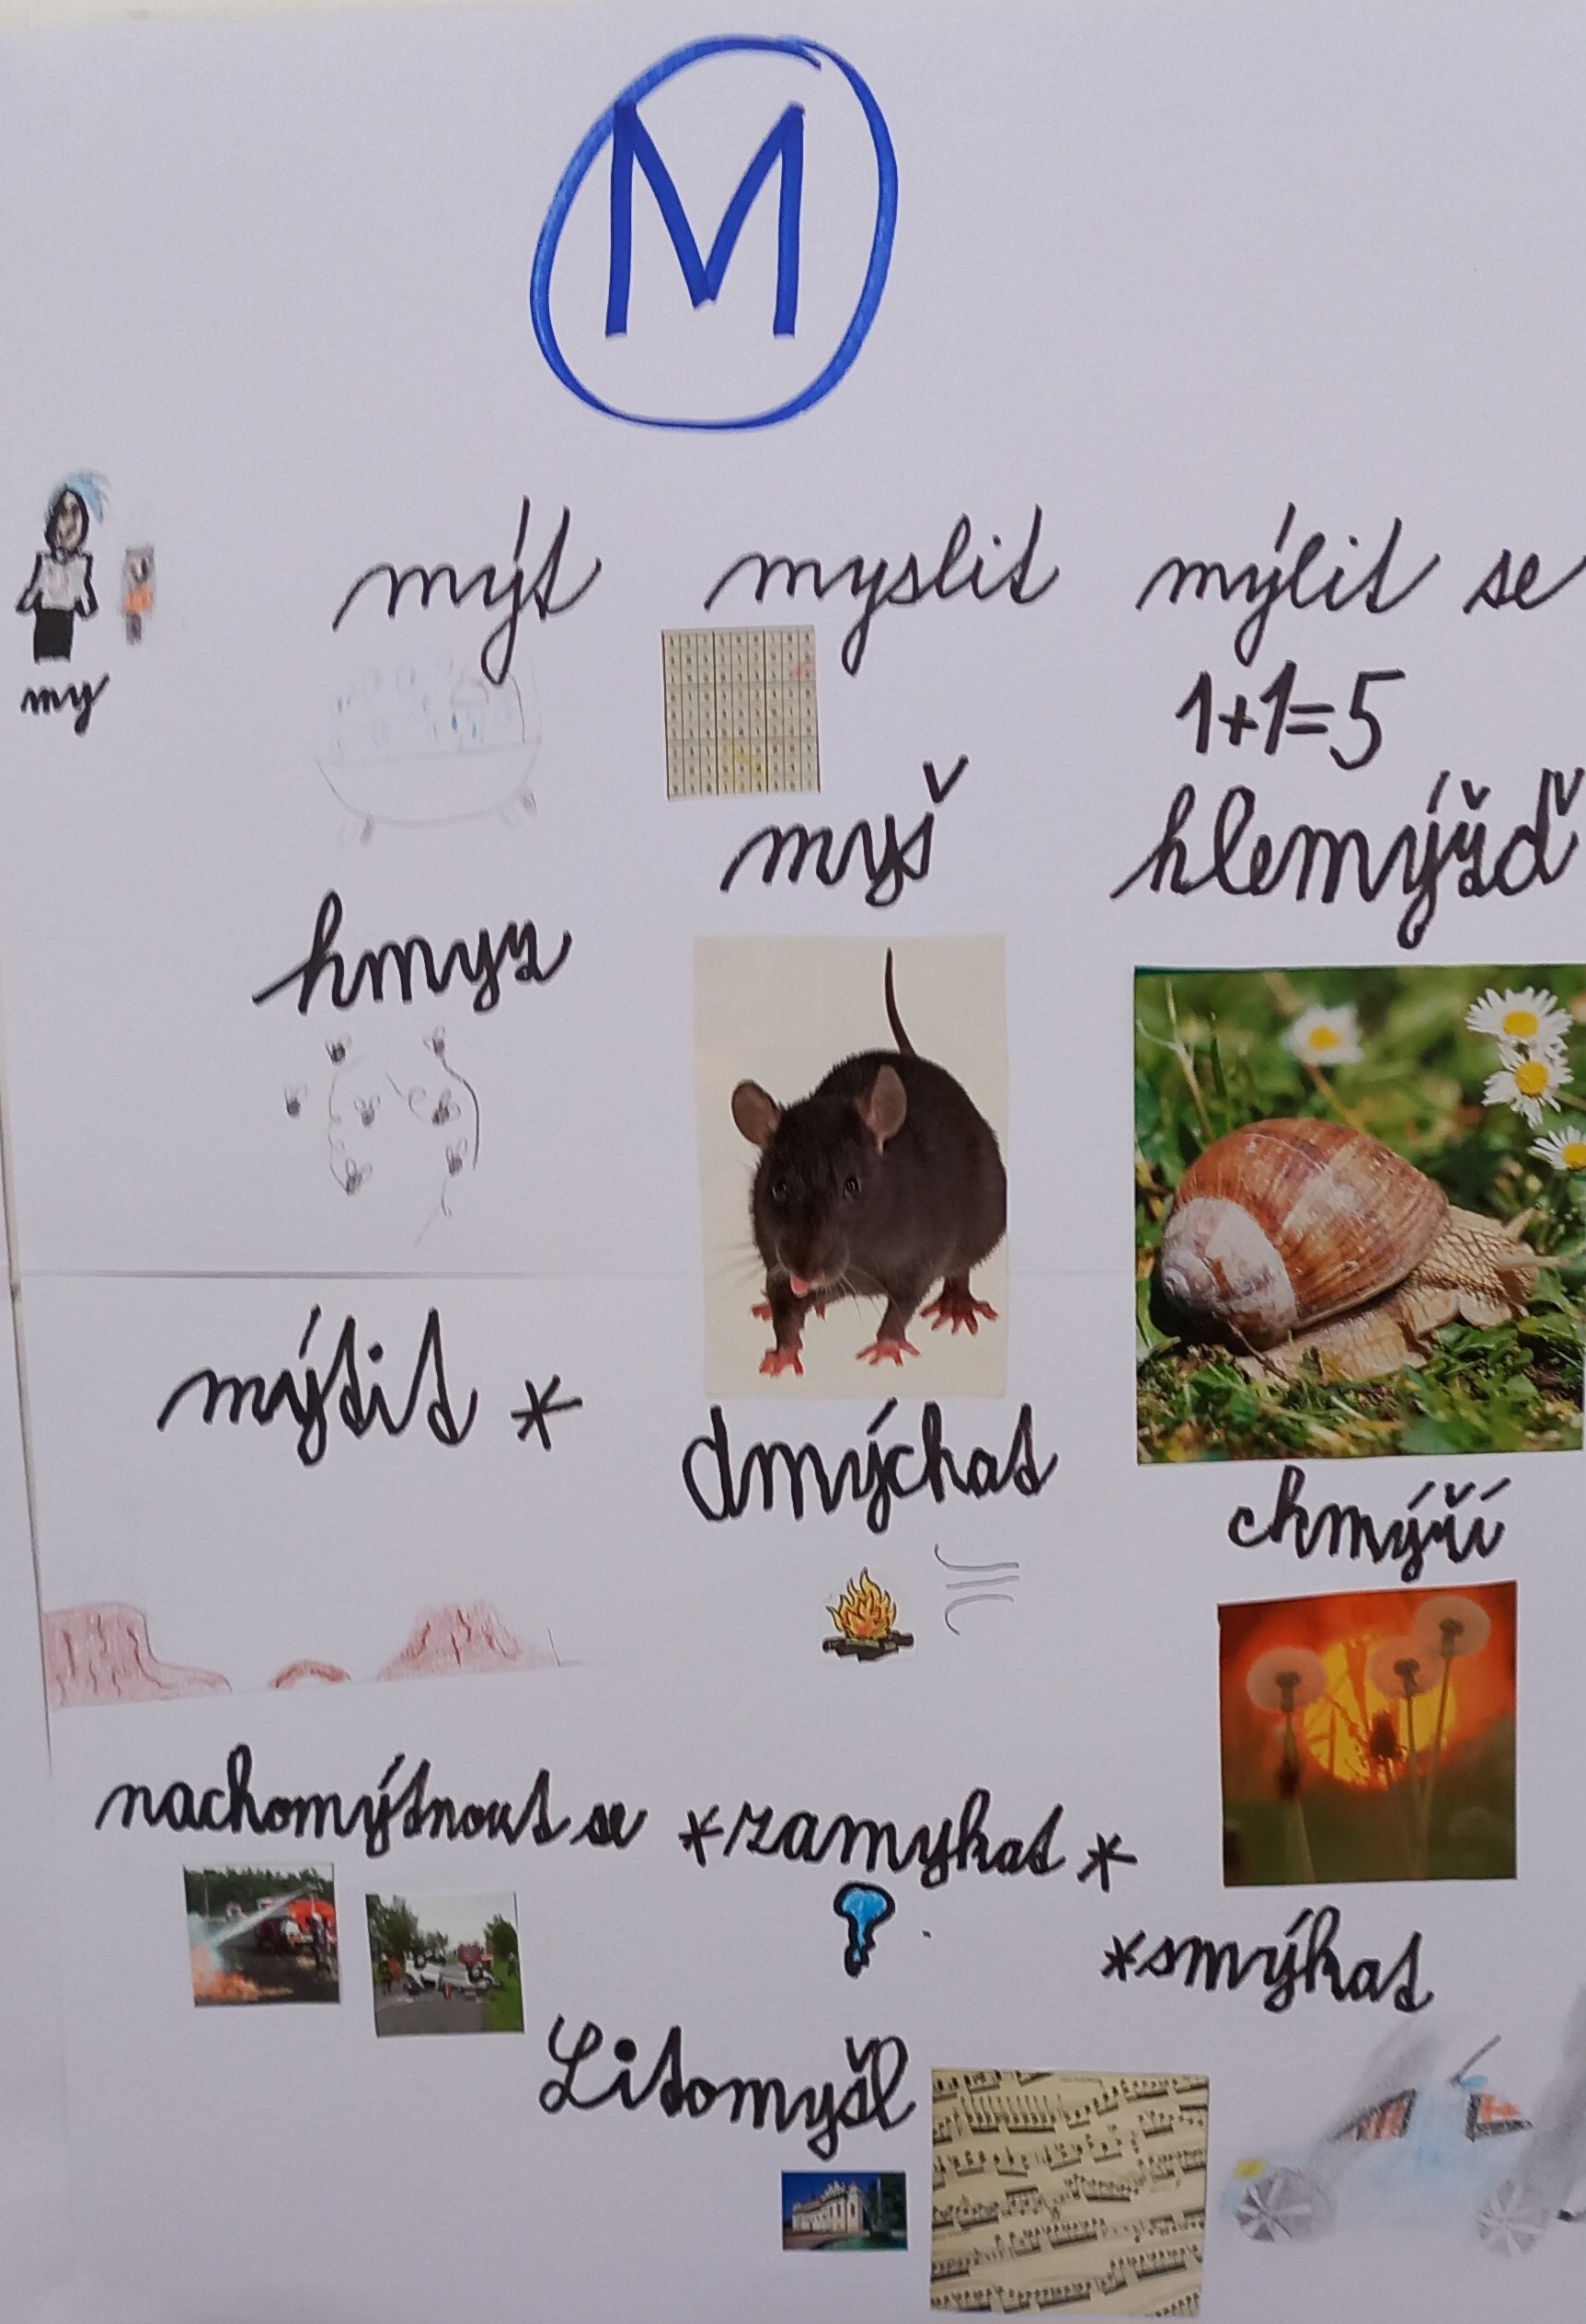 M
mýt myslit mýlit se
my
1+1=5
myš hlemýžď
hmyz
mýtit *
dmýchat
chmýří
nachomýtnout se *zamykat *
*smýkat
Litomyšl